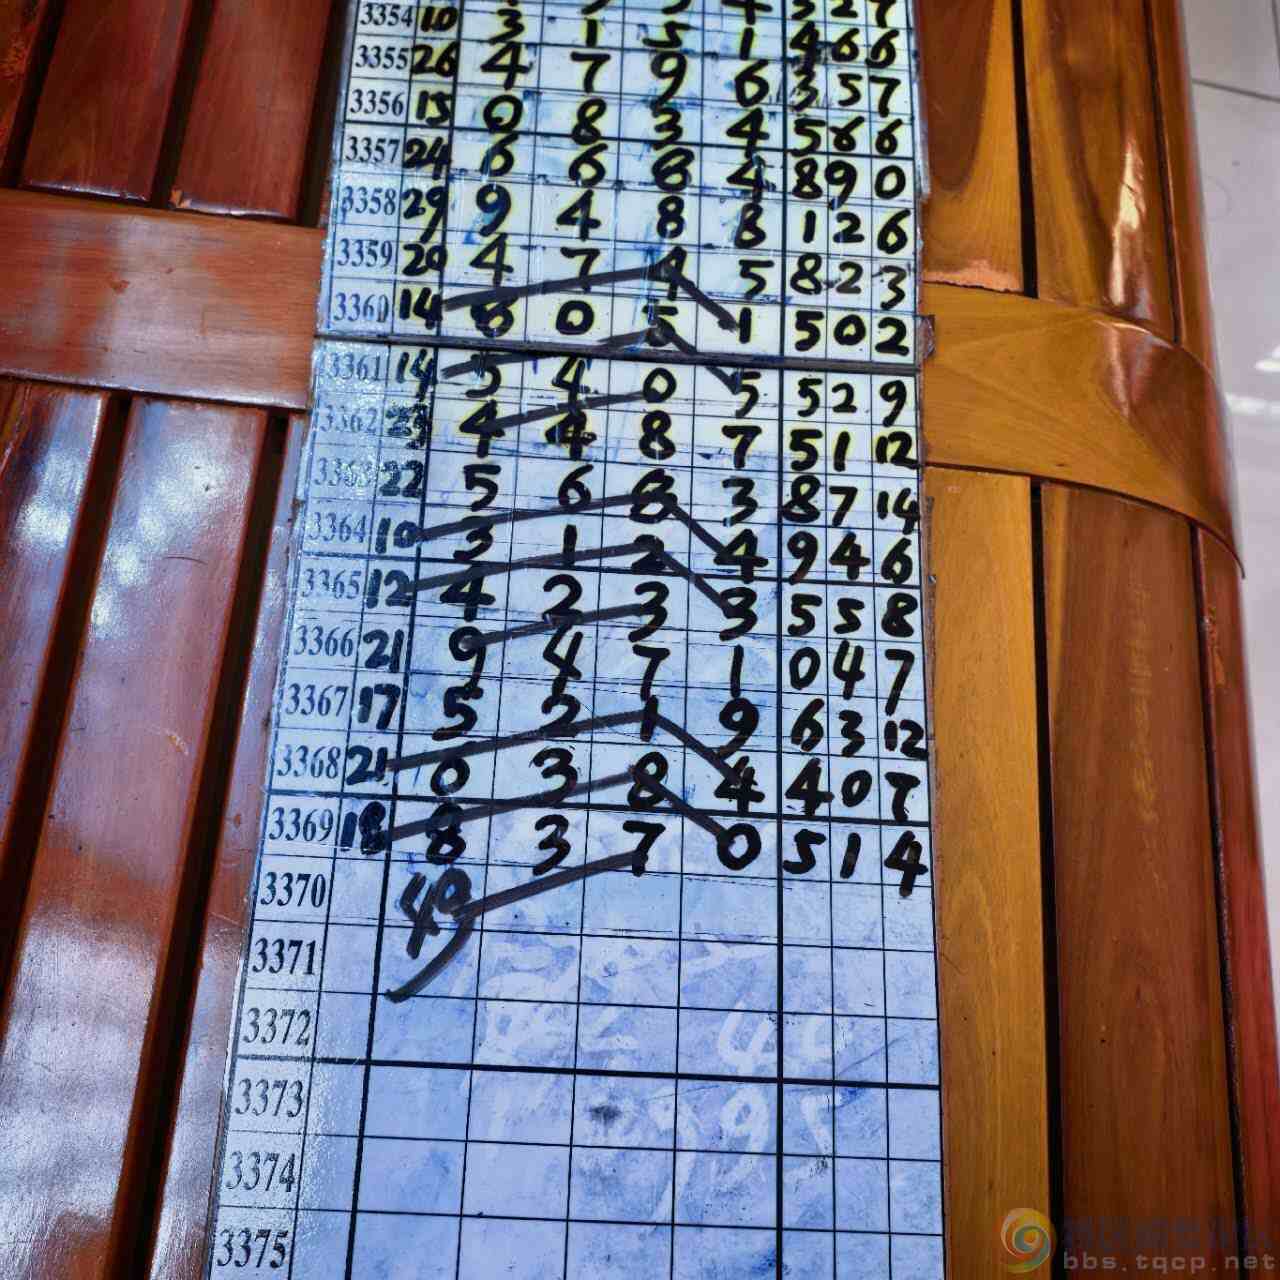 3354 10 3 1 5 1 4 6 6
3355 26 4 7 9 6 3 5 7
3356 15 0 8 3 4 5 6 6
3357 24 6 6 8 4 8 9 0
3358 29 9 4 8 8 1 2 6
3359 20 4 7 4 5 8 2 3
3360 14 8 0 5 1 5 0 2
3361 14 5 4 0 5 5 2 9
3362 23 4 4 8 7 5 1 12
3363 22 5 6 8 3 8 7 14
3364 10 3 1 2 4 9 4 6
3365 12 4 2 3 3 5 5 8
3366 21 9 4 7 1 0 4 7
3367 17 5 2 1 9 6 3 12
3368 21 0 3 8 4 4 0 7
3369 18 8 3 7 0 5 1 4
3370 49
3371
3372
3373
3374
3375
bbs.tqcp.net